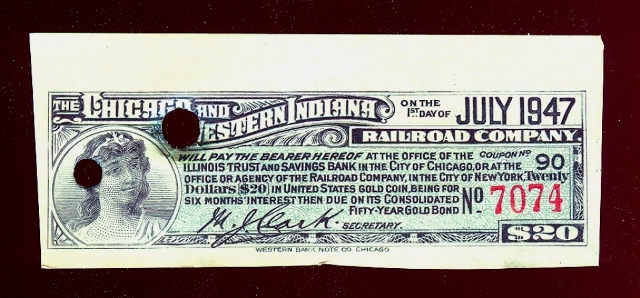 THE CHICAGO AND
WESTERN INDIANA
ON THE
1ST DAY OF JULY 1947
RAILROAD COMPANY.
WILL PAY THE BEARER HEREOF AT THE OFFICE OF THE
ILLINOIS TRUST AND SAVINGS BANK IN THE CITY OF CHICAGO, OR AT THE
OFFICE OR AGENCY OF THE RAILROAD COMPANY, IN THE CITY OF NEW YORK, Twenty
Dollars ($20) IN UNITED STATES GOLD COIN, BEING FOR
SIX MONTHS' INTEREST THEN DUE ON ITS CONSOLIDATED
FIFTY-YEAR GOLD BOND
COUPON No
90
No 7074
M. J. Clark.
SECRETARY.
$20
WESTERN BANK NOTE CO. CHICAGO